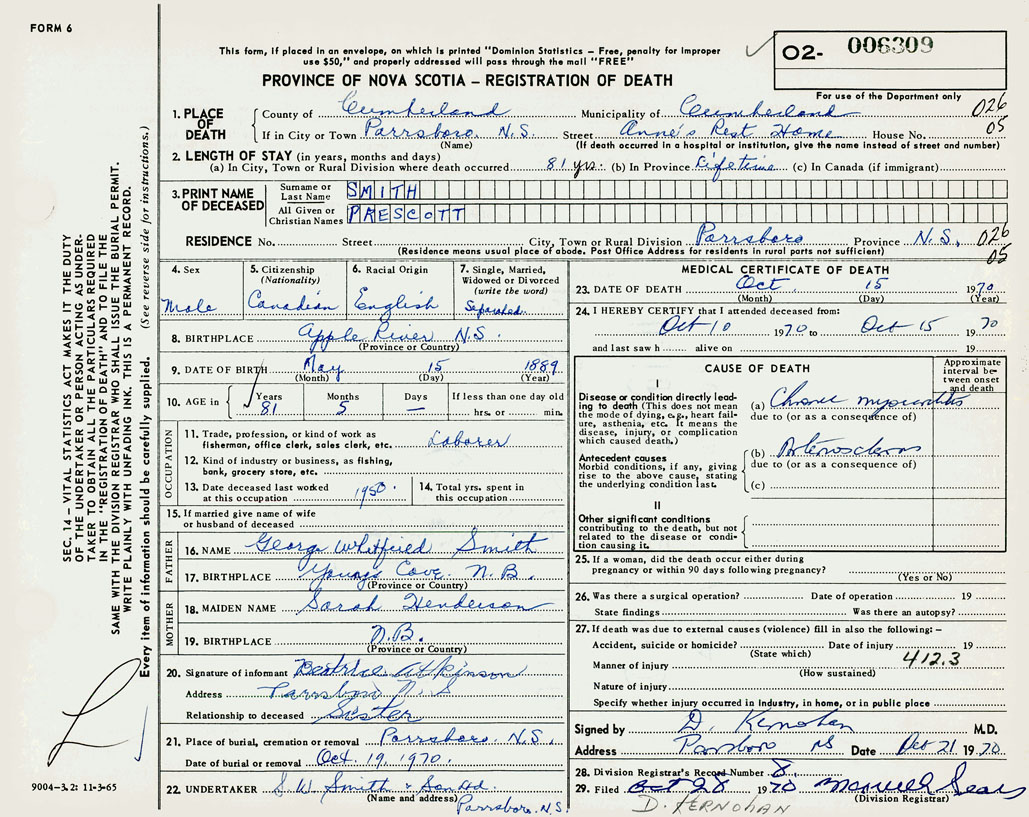 FORM 6
This form, if placed in an envelope, on which is printed "Dominion Statistics – Free, penalty for improper
use $50," and properly addressed will pass through the mail "FREE"
PROVINCE OF NOVA SCOTIA – REGISTRATION OF DEATH
O2- 006309
For use of the Department only
1. PLACE OF DEATH
County of Cumberland Municipality of Cumberland 026
If in City or Town Parrsboro. N.S. Street Anne's Rest Home House No. 05
(Name) (If death occurred in a hospital or institution, give the name instead of street and number)
2. LENGTH OF STAY (in years, months and days)
(a) In City, Town or Rural Division where death occurred 81 yrs. (b) In Province Lifetime (c) In Canada (if immigrant)
3. PRINT NAME OF DECEASED
Surname or Last Name SMITH
All Given or Christian Names PRESCOTT
RESIDENCE No. Street City, Town or Rural Division Parrsboro Province N.S. 026
05
(Residence means usual place of abode. Post Office Address for residents in rural parts not sufficient)
4. Sex
Male
5. Citizenship
(Nationality)
Canadian
6. Racial Origin
English
7. Single, Married,
Widowed or Divorced
(write the word)
Separated
8. BIRTHPLACE Apple River N.S.
(Province or Country)
9. DATE OF BIRTH May 15 1889
(Month) (Day) (Year)
10. AGE in
Years Months Days If less than one day old
81 5 — hrs. or min.
OCCUPATION
11. Trade, profession, or kind of work as
fisherman, office clerk, sales clerk, etc. Laborer
12. Kind of industry or business, as fishing,
bank, grocery store, etc.
13. Date deceased last worked
at this occupation 1950.
14. Total yrs. spent in
this occupation
15. If married give name of wife
or husband of deceased
FATHER
16. NAME George Whitfield Smith
17. BIRTHPLACE Youngs Cove N.B.
(Province or Country)
MOTHER
18. MAIDEN NAME Sarah Henderson
19. BIRTHPLACE N.B.
(Province or Country)
20. Signature of informant Beatrice Atkinson
Address Parrsboro N.S
Relationship to deceased Sister
21. Place of burial, cremation or removal Parrsboro. N.S.
Date of burial or removal Oct. 19, 1970.
22. UNDERTAKER S W Smith & Son Ltd.
(Name and address) Parrsboro. N.S.
MEDICAL CERTIFICATE OF DEATH
23. DATE OF DEATH Oct 15 1970
(Month) (Day) (Year)
24. I HEREBY CERTIFY that I attended deceased from:
Oct 10 1970 to Oct 15 19 70
and last saw h alive on 19
CAUSE OF DEATH
Approximate
interval be-
tween onset
and death
I
Disease or condition directly lead-
ing to death (This does not mean
the mode of dying, e.g., heart fail-
ure, asthenia, etc. It means the
disease, injury, or complication
which caused death.)
(a) Chronic myocarditis
due to (or as a consequence of)
Antecedent causes
Morbid conditions, if any, giving
rise to the above cause, stating
the underlying condition last.
(b) Arteriosclerosis
due to (or as a consequence of)
(c)
II
Other significant conditions
contributing to the death, but not
related to the disease or condi-
tion causing it.
25. If a woman, did the death occur either during
pregnancy or within 90 days following pregnancy?
(Yes or No)
26. Was there a surgical operation? Date of operation 19
State findings Was there an autopsy?
27. If death was due to external causes (violence) fill in also the following: –
Accident, suicide or homicide? Date of injury 19
(State which) 412.3
Manner of injury
(How sustained)
Nature of injury
Specify whether injury occurred in industry, in home, or in public place
Signed by D. Kernohan M.D.
Address Parrsboro NS Date Oct 21 1970
28. Division Registrar's Record Number 8.
29. Filed Oct 28 1970 Maxwell Sears
(Division Registrar)
D. KERNOHAN
SEC. 14 – VITAL STATISTICS ACT MAKES IT THE DUTY
OF THE UNDERTAKER OR PERSON ACTING AS UNDER-
TAKER TO OBTAIN ALL THE PARTICULARS REQUIRED
IN THE "REGISTRATION OF DEATH" AND TO FILE THE
SAME WITH THE DIVISION REGISTRAR WHO SHALL ISSUE THE BURIAL PERMIT.
WRITE PLAINLY WITH UNFADING INK. THIS IS A PERMANENT RECORD.
Every item of information should be carefully supplied. (See reverse side for instructions.)
9004-3.2: 11-3-65